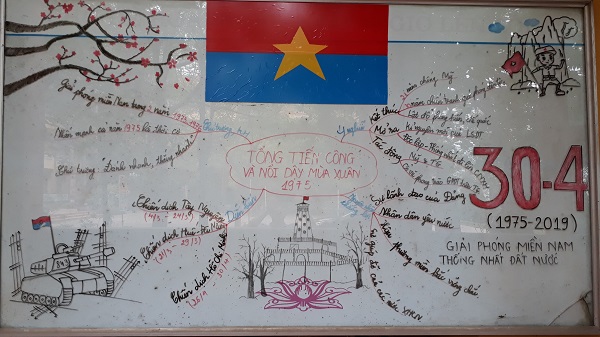 Giải phóng miền Nam trong 2 năm 1975-1976
Nhấn mạnh cả năm 1975 là thời cơ
Chủ trương: "Đánh nhanh, thắng nhanh"
TỔNG TIẾN CÔNG
VÀ NỔI DẬY MÙA XUÂN
1975
Diễn biến
Chiến dịch Tây Nguyên
(4/3 - 24/3)
Chiến dịch Huế - Đà Nẵng
(21/3 - 29/3)
Chiến dịch Hồ Chí Minh
(26/4 - 30/4)
Ý nghĩa
Kết thúc
21 năm chống Mỹ
Mở ra
Kỷ nguyên mới của LSDT
Tác động
Mỹ & TG
Sự lãnh đạo của Đảng
Nhân dân yêu nước
Hậu phương miền Bắc vững chắc
30-4
(1975-2019)
GIẢI PHÓNG MIỀN NAM
THỐNG NHẤT ĐẤT NƯỚC
843